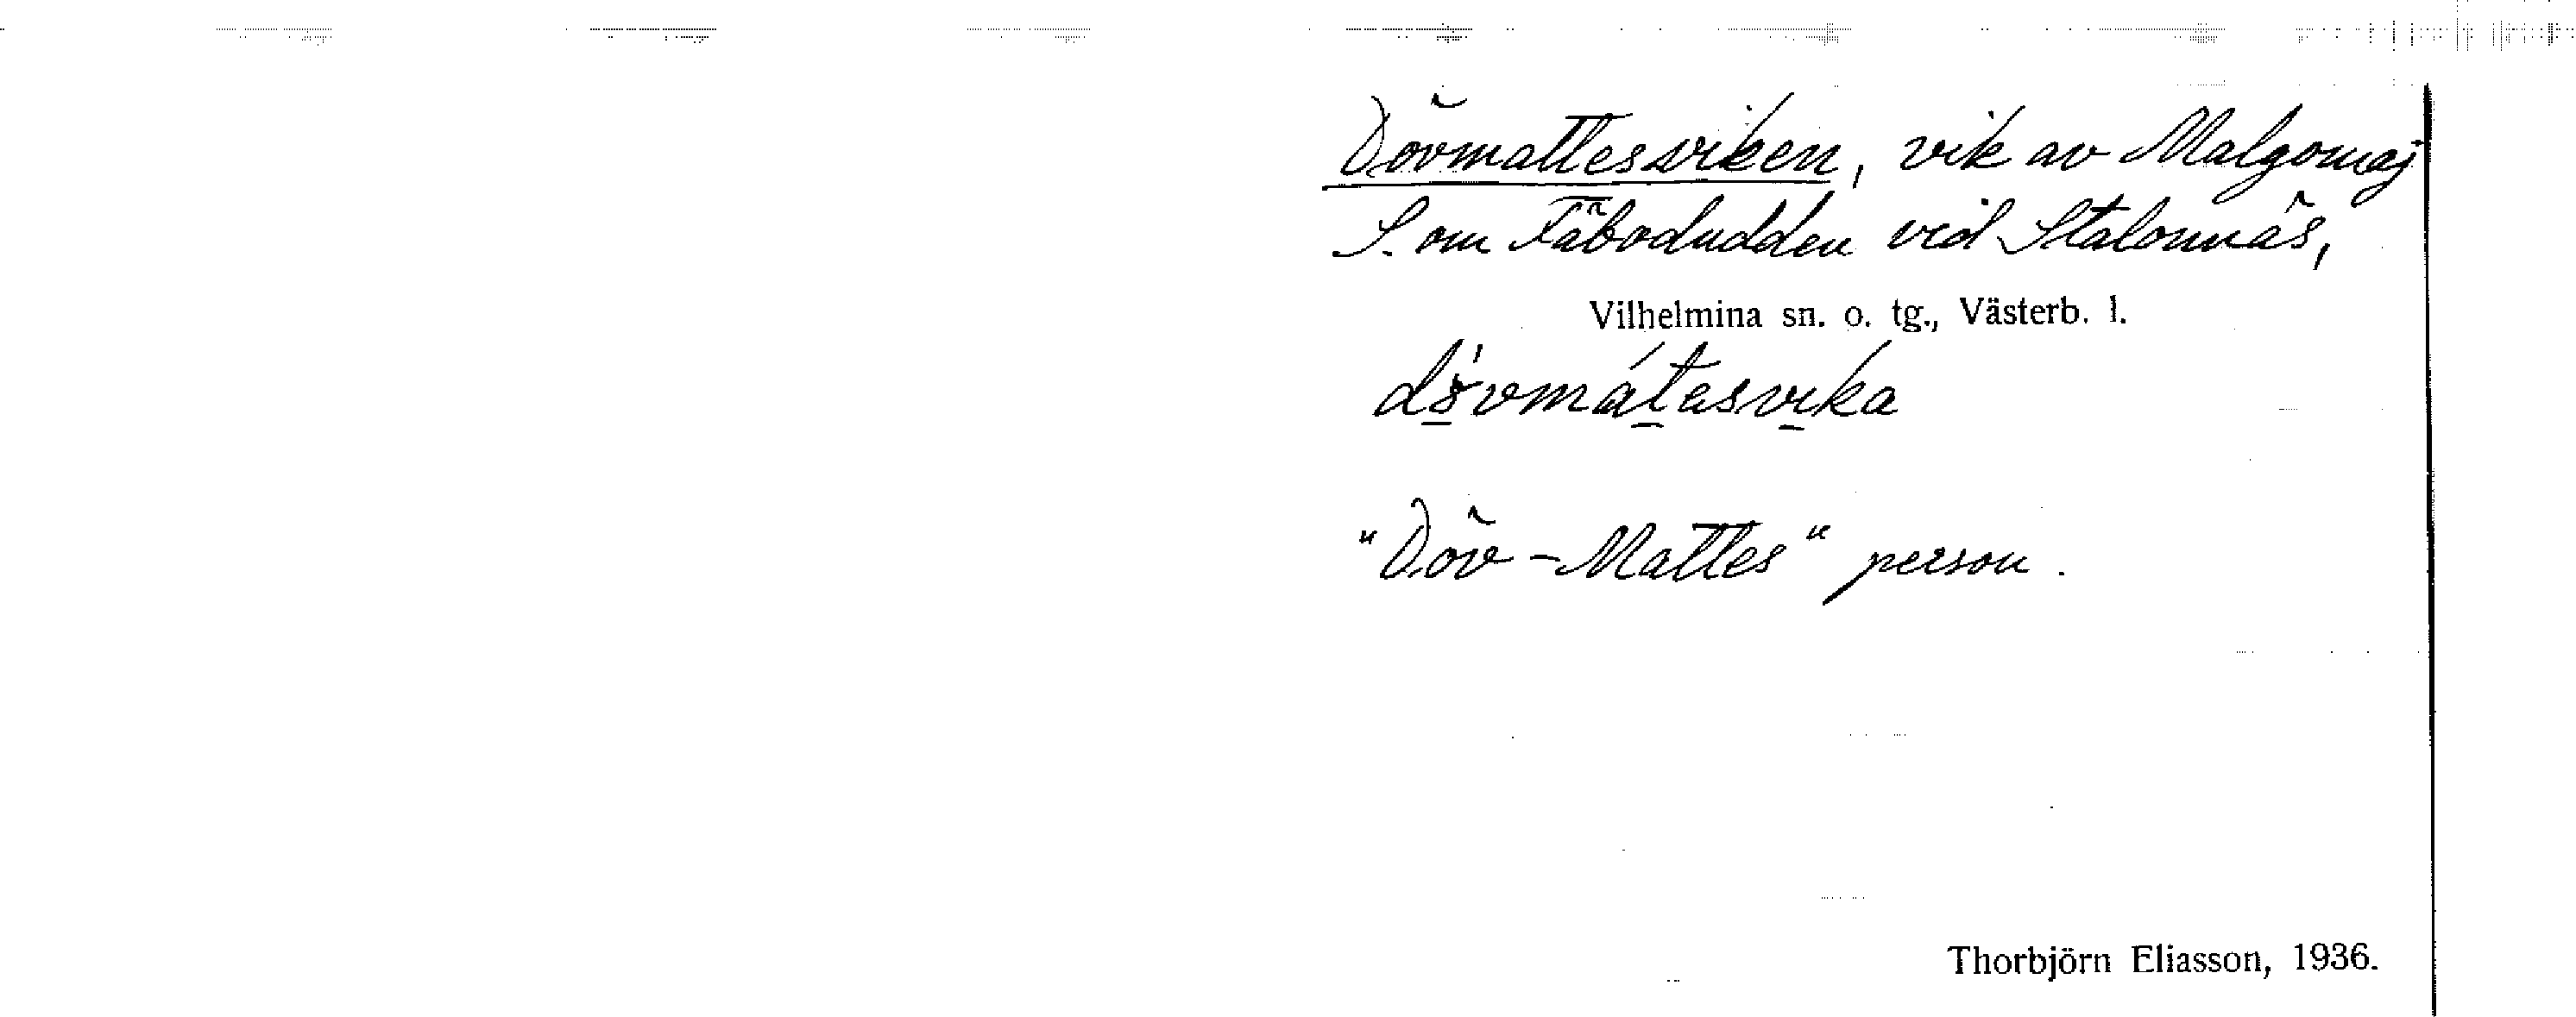 Dövmattesviken, vik av Malgomaj
S. om Fäbodudden vid Stalonnäs,
Vilhelmina sn. o. tg., Västerb. l.
dö̀vmátasvika
"Döv-Mattes" person.
Thorbjörn Eliasson, 1936.